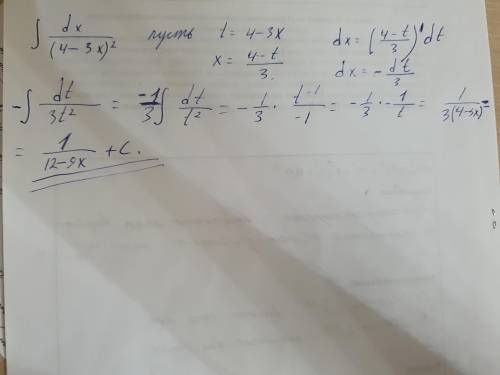 ∫ dx/(4-3x)² пусть t = 4-3x dx = ((4-t)/3)' dt
x = (4-t)/3. dx = -dt/3
-∫ dt/3t² = -1/3 ∫ dt/t² = -1/3 · t⁻¹/-1 = -1/3 · -1/t = 1/3(4-3x) =
= 1/(12-9x) + C.